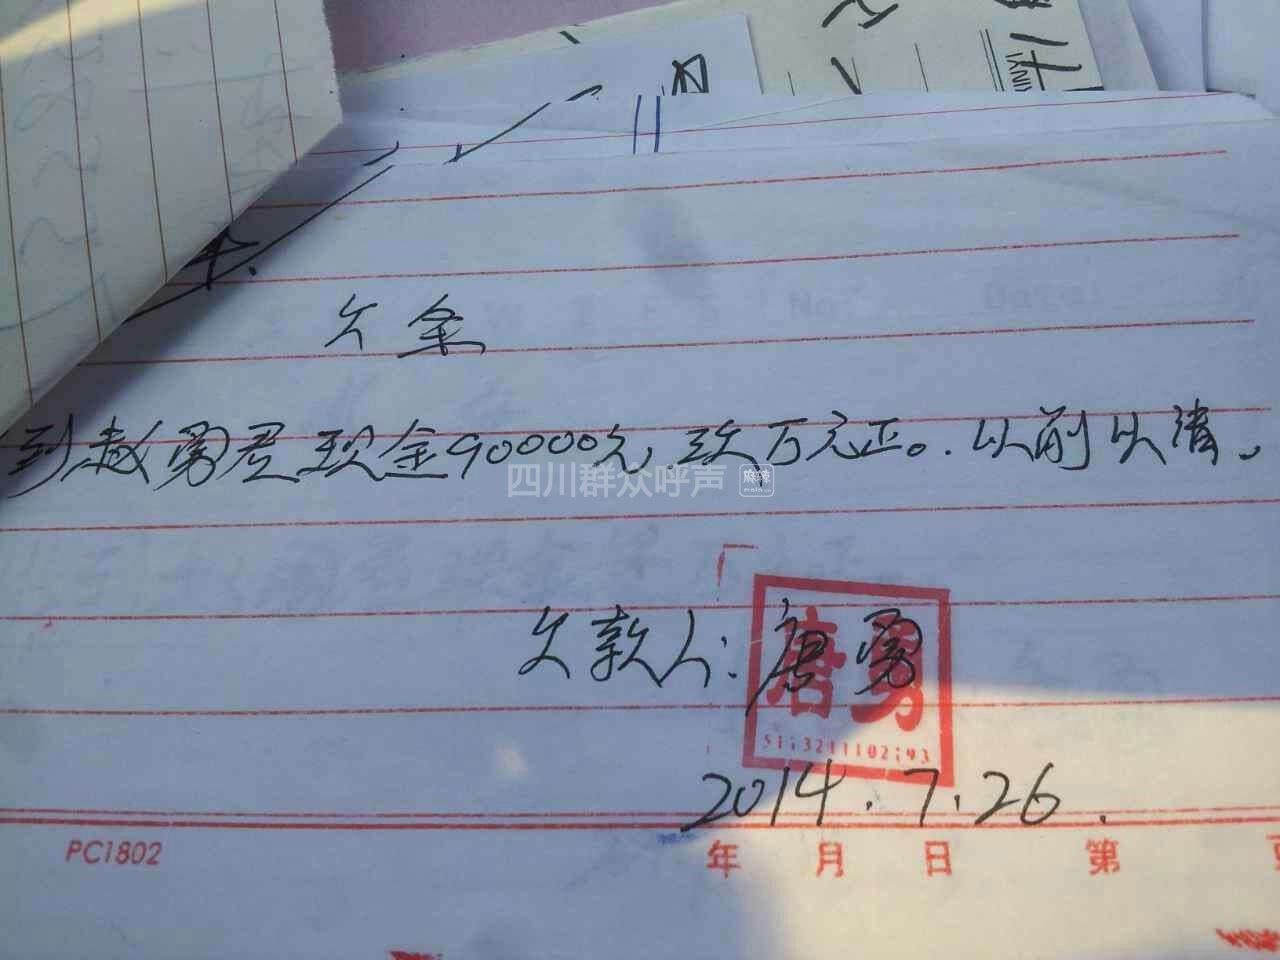 欠金
到赵勇君现金90000元,玖万元正。以前以清。
四川群众呼声 麻辣
欠款人:唐勇
唐勇
2014.7.26.
PC1802 年 月 日 第